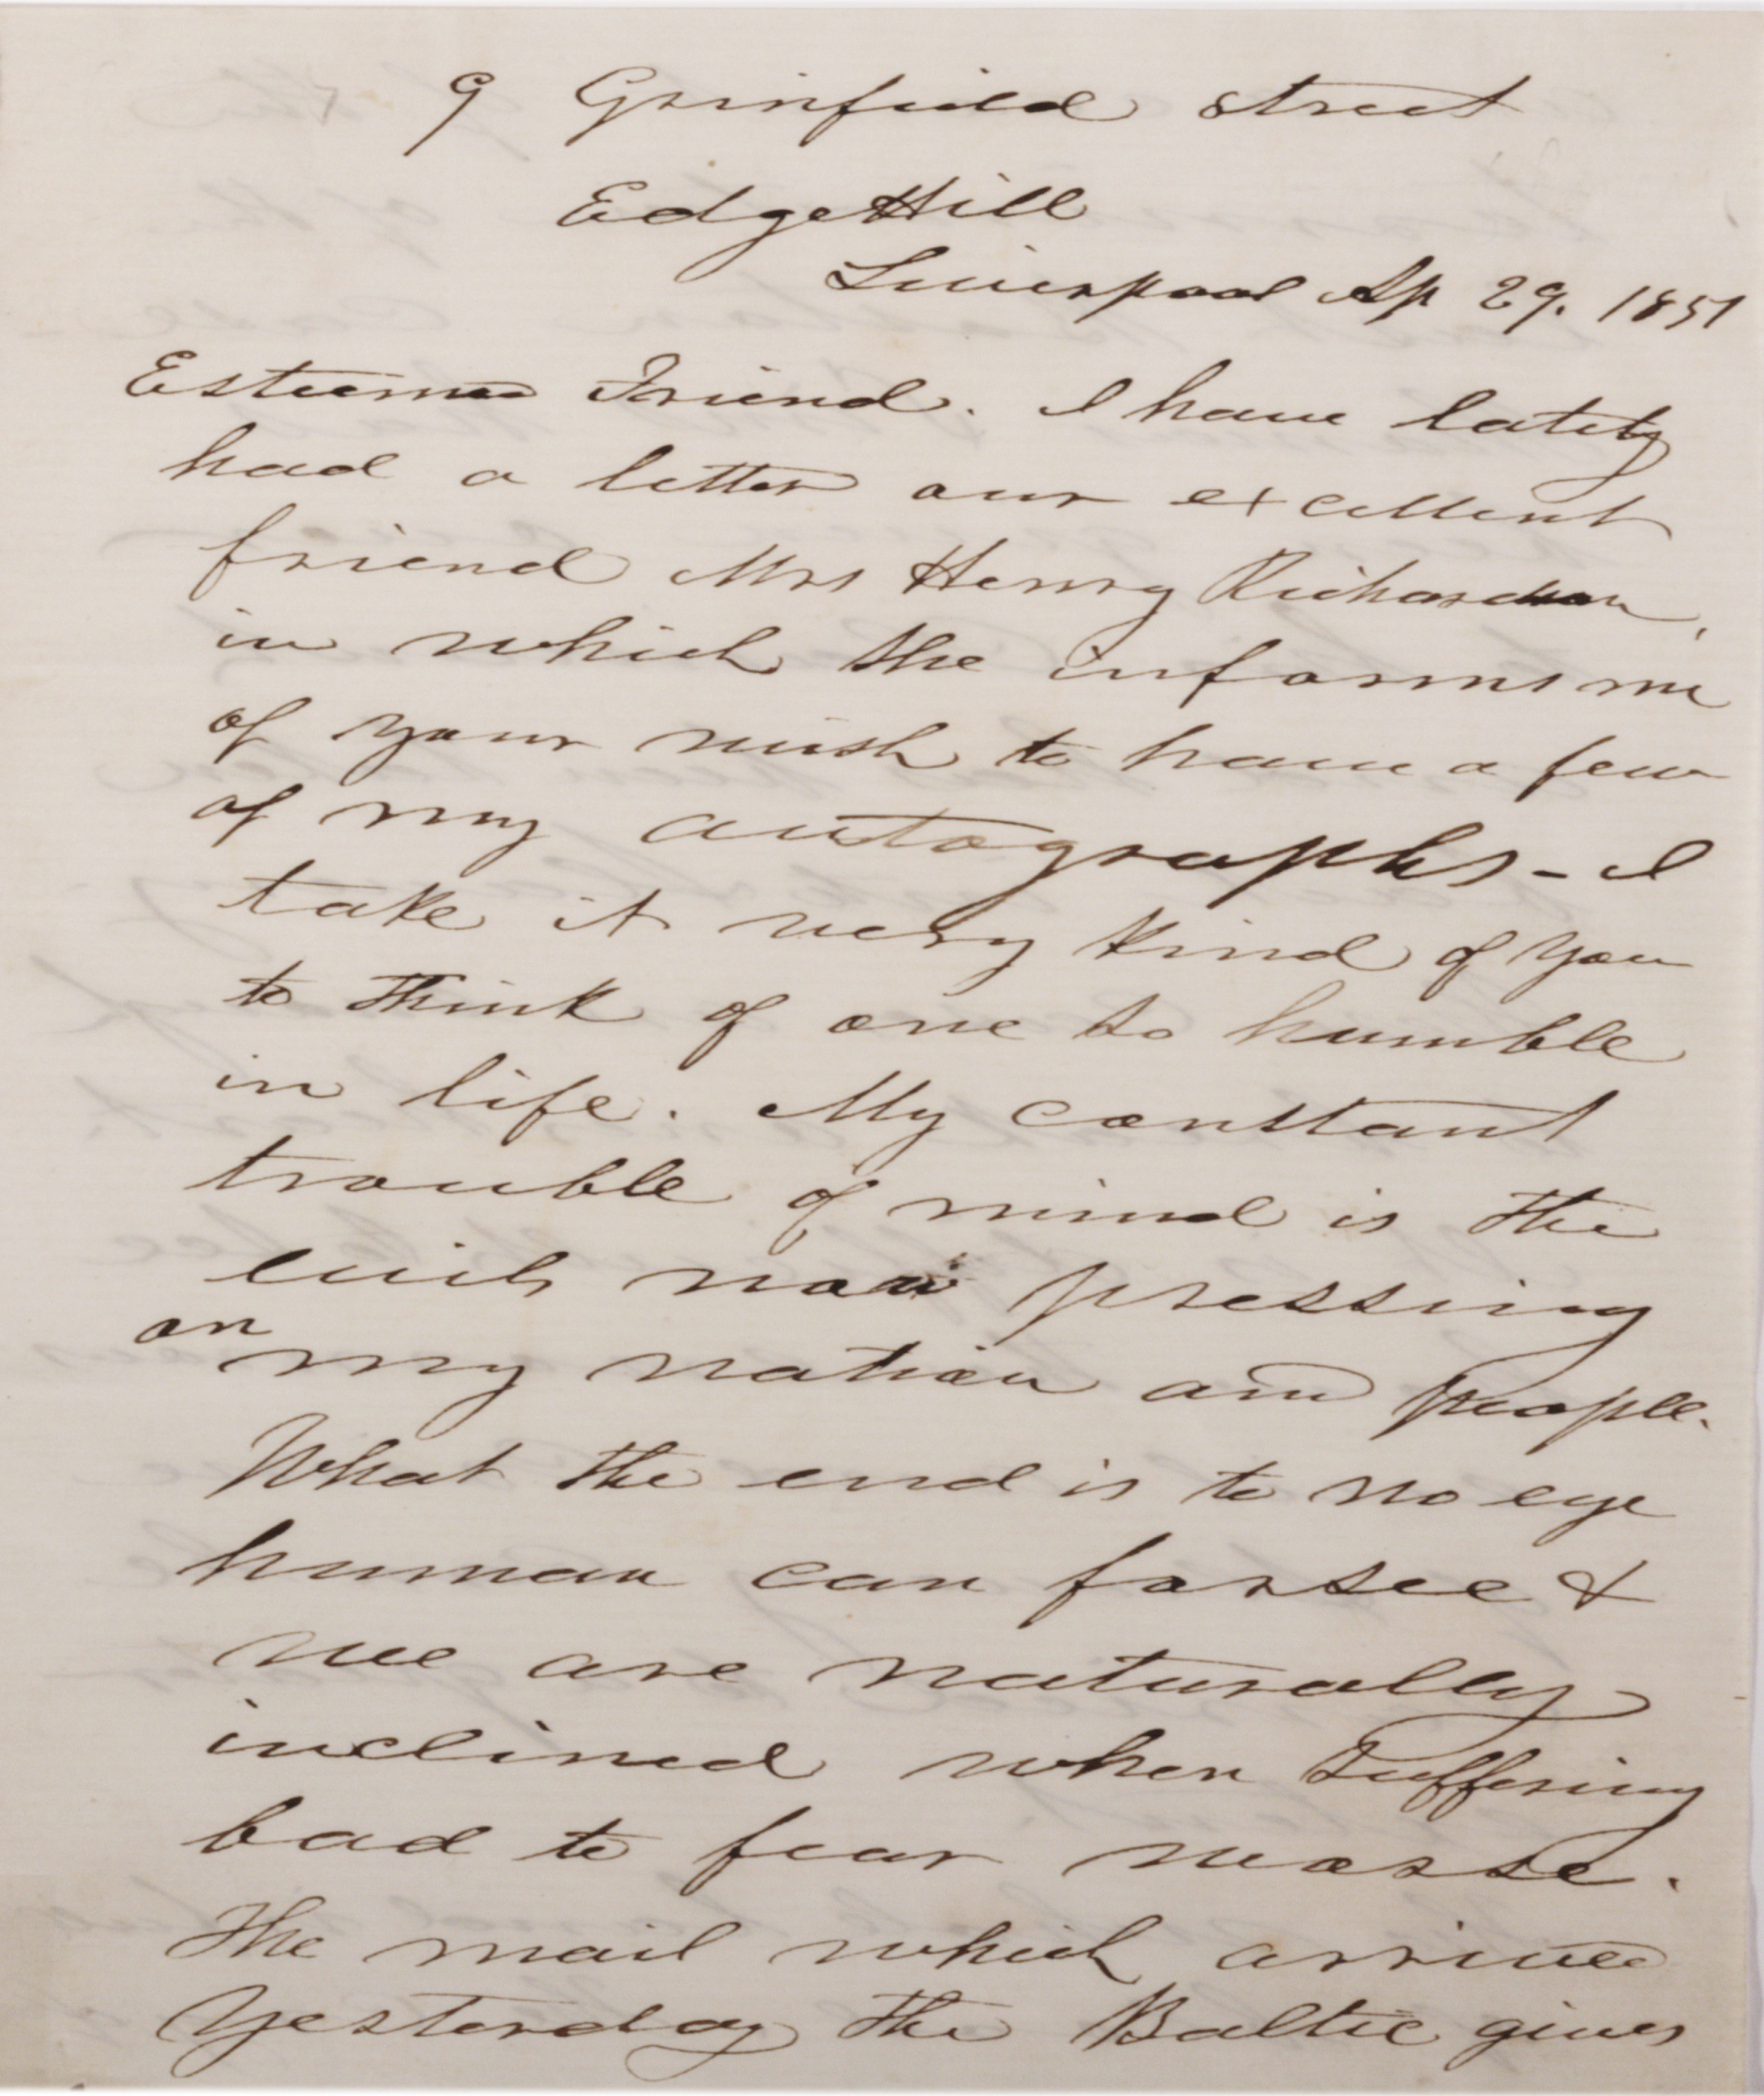 9 Grinfield Street
Edge Hill
Liverpool Ap 29. 1851
Esteemed Friend. I have lately
had a letter our excellent
friend Mrs Henry Richardson,
in which she informs me
of your wish to have a few
of my autographs - I
take it very kind of you
to think of one so humble
in life. My constant
trouble of mind is the
evils now pressing
on my nation and people.
What the end is to no eye
human can forsee &
we are naturally
inclined when suffering
bad to fear worse.
The mail which arrived
yesterday the Baltic gives